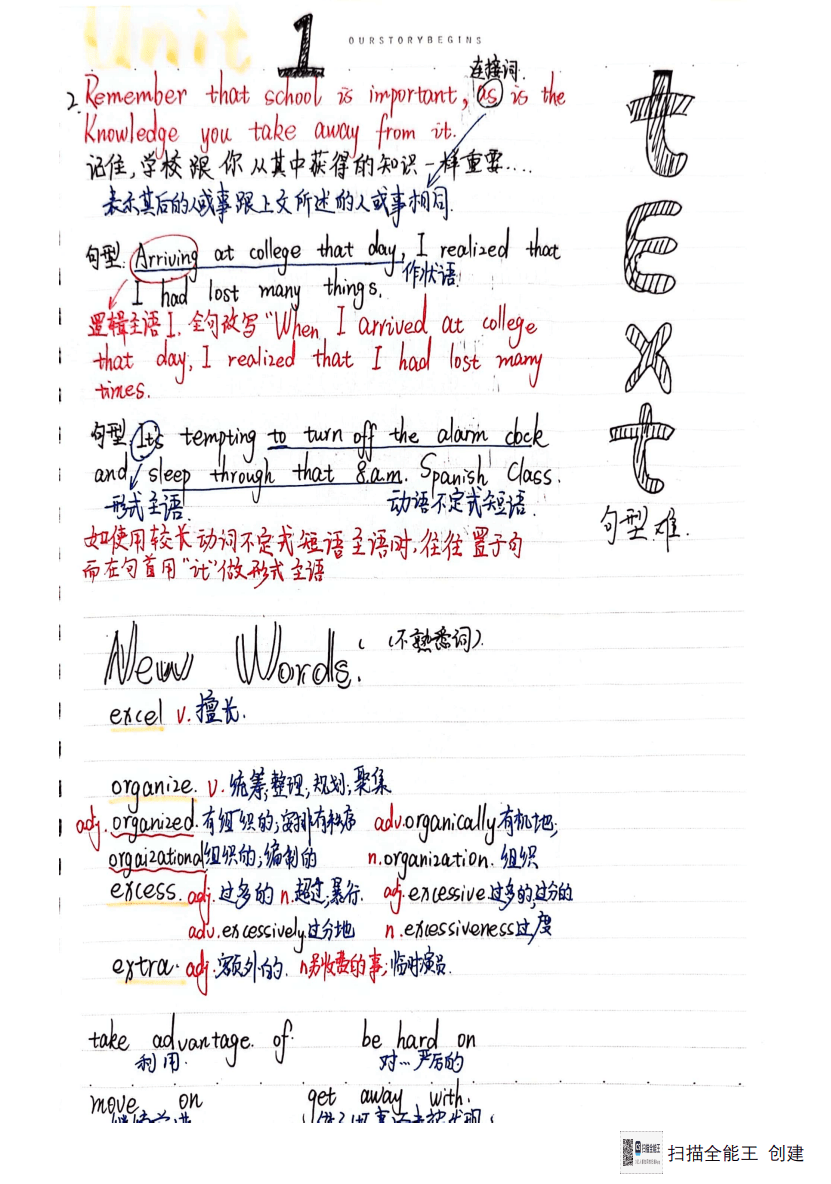 Unit 1 OURSTORYBEGINS
连接词.
2. Remember that school is important, as is the
Knowledge you take away from it.
记住,学校跟你从其中获得的知识一样重要....
表示其后的人或事跟上文所述的人或事相同.
句型: Arriving at college that day, I realized that
作状语
I had lost many things.
逻辑主语I. 全句改写“When I arrived at college
that day, I realized that I had lost many
times.
句型: It's tempting to turn off the alarm clock
and sleep through that 8.a.m. Spanish Class.
形式主语. 动语不定式短语.
如使用较长动词不定式短语主语时,往往置于句
而在句首用“it”做形式主语
text
句型.难.
New Words. (不熟悉词).
excel v. 擅长.
organize. v. 统筹;整理;规划;聚集
adj. organized.有组织的;安排有秩序 adv.organically.有机地;
orgaizational组织的;编制的 n.organization. 组织
excess. adj.过多的 n.超过;暴行. adj.excessive.过多的,过分的
adv.excessively.过分地 n.excessiveness过度
extra. adj.额外的. n另收费的事;临时演员.
take advantage. of be hard on
利用. 对...严厉的
move on get away with.
扫描全能王 创建